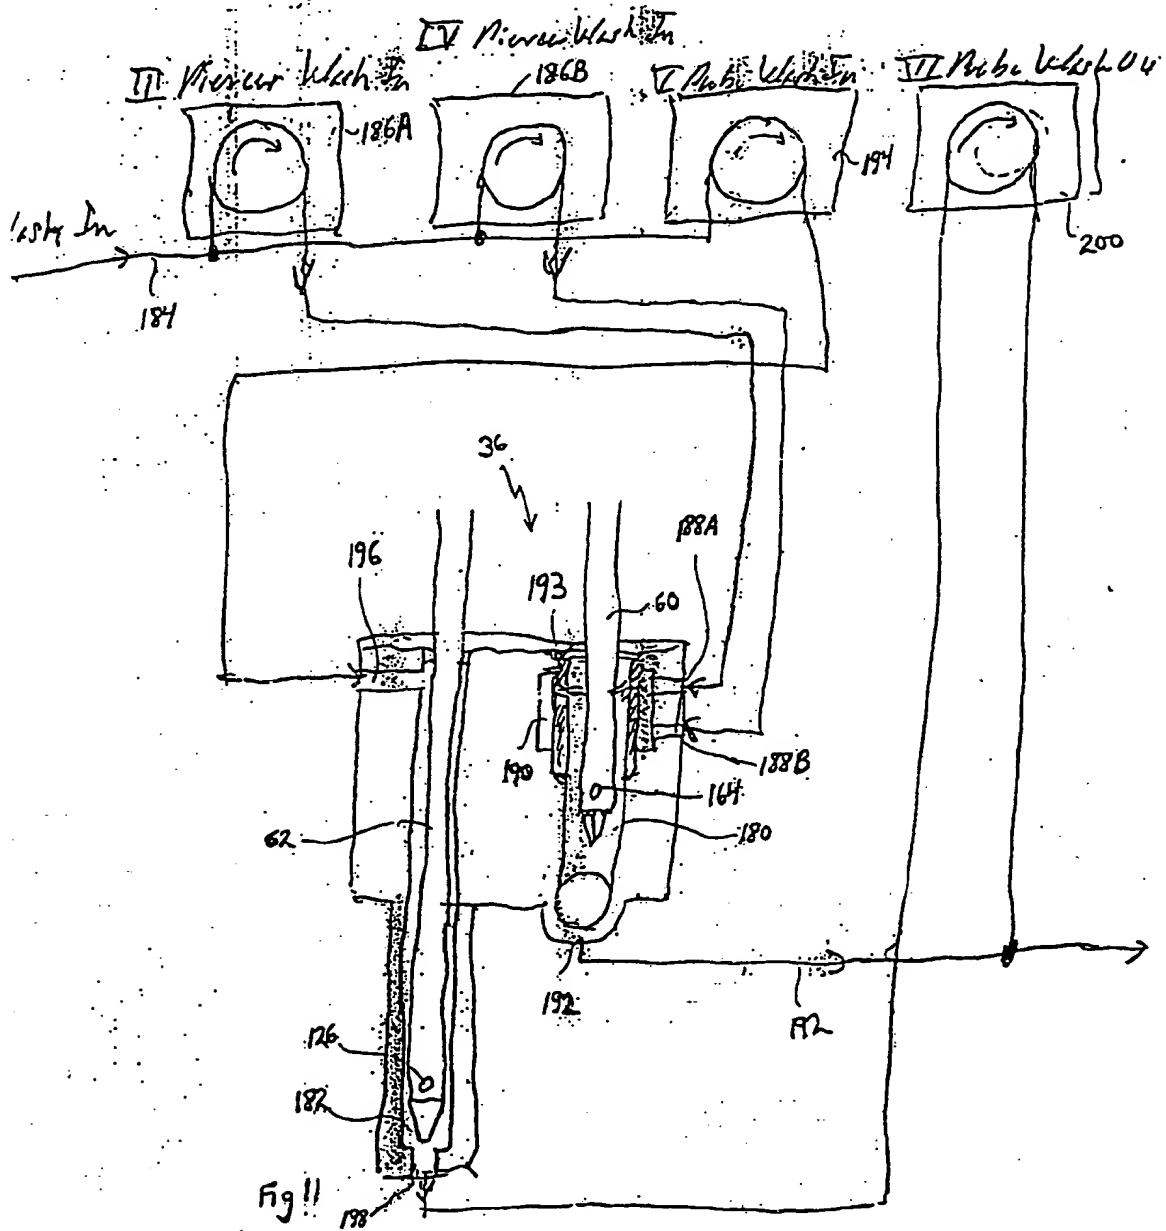 IV Piercer Wash In
III Piercer Wash In
186B
V Probe Wash In
VII Probe Wash Ou
186A
194
In
200
184
36
188A
196
193
60
190
188B
164
62
180
192
126
182
Fig 11
198